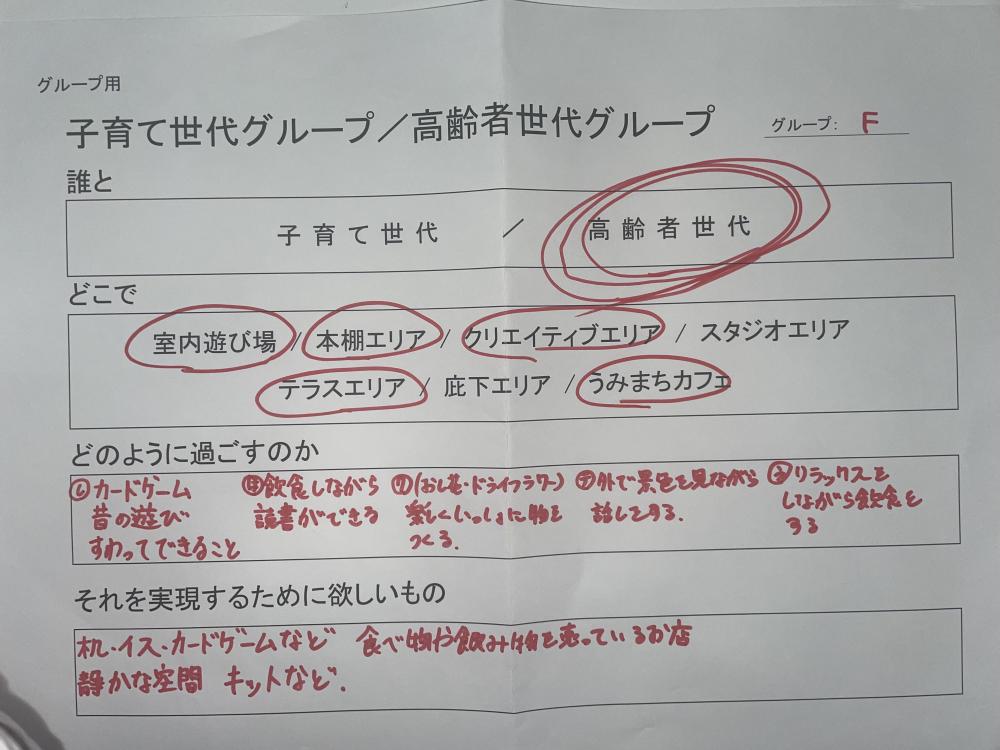 グループ用
子育て世代グループ／高齢者世代グループ グループ: F
誰と
子育て世代 ／ 高齢者世代
どこで
室内遊び場 / 本棚エリア / クリエイティブエリア / スタジオエリア
テラスエリア / 庇下エリア / うみまちカフェ
どのように過ごすのか
カードゲーム
昔の遊び
すわってできること
㋭飲食しながら
読書ができる
㋗(おし花・ドライフラワー)
楽しくいっしょに物を
つくる.
㋢外で景色を見ながら
話しをする.
リラックスを
しながら飲食を
する
それを実現するために欲しいもの
机・イス・カードゲームなど 食べ物や飲み物を売っているお店
静かな空間 キットなど.